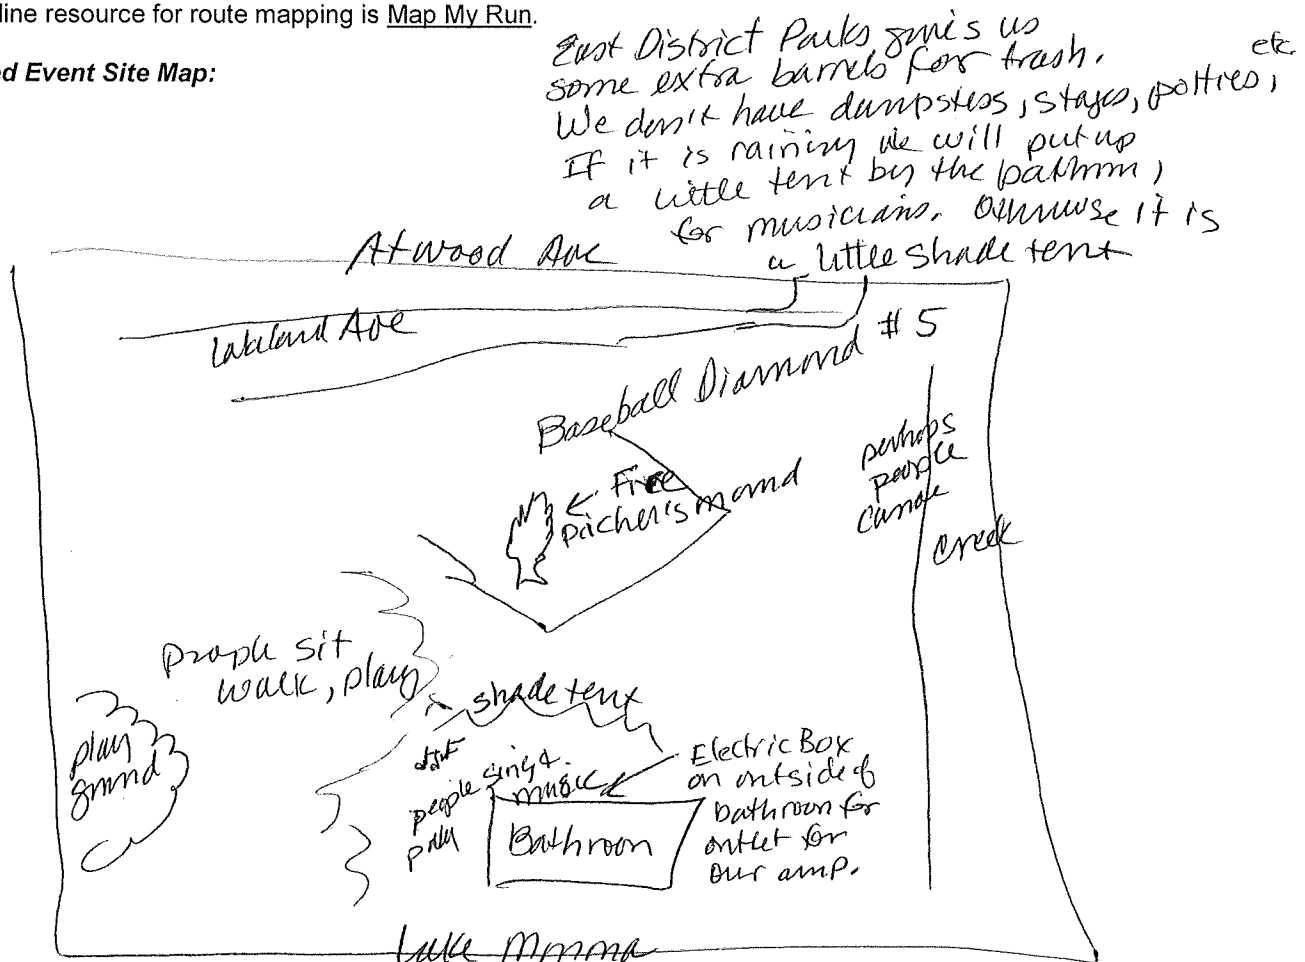 line resource for route mapping is Map My Run.
ed Event Site Map:
East District Parks gives us
some extra barrels for trash.
We don't have dumpsters, stages, potties, etc.
If it is raining we will put up
a little tent by the bathrm,
for musicians. Otherwise it is
a little shade tent
Atwood Ave
Lakeland Ave
Baseball Diamond #5
perhaps
people
canoe
creek
← Fire
pitcher's mound
People sit
walk, play
play
ground
shade tent
people sing &
play music
Electric Box
on outside of
bathroom for
outlet for
our amp.
Bathroom
Lake Monona